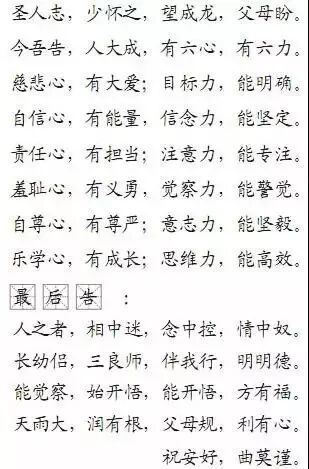 圣人志，少怀之，望成龙，父母盼。
今吾告，人大成，有六心，有六力。
慈悲心，有大爱；目标力，能明确。
自信心，有能量，信念力，能坚定。
责任心，有担当；注意力，能专注。
羞耻心，有义勇，觉察力，能警觉。
自尊心，有尊严；意志力，能坚毅。
乐学心，有成长；思维力，能高效。
最后告：
人之者，相中迷，念中控，情中奴。
长幼侣，三良师，伴我行，明明德。
能觉察，始开悟，能开悟，方有福。
天雨大，润有根，父母规，利有心。
祝安好，曲莫谨。